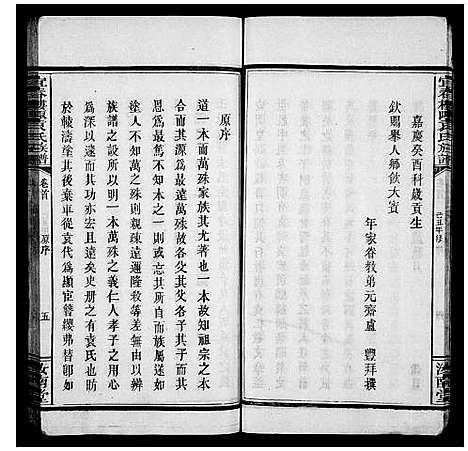 嘉慶癸酉科歲貢生
欽賜舉人鄉飲大賓
年家眷教弟元齋盧　豐拜撰
原序
道一本而萬殊家族其尤著也一本故知祖宗之本
合而同其受之最遠萬殊故有親疎之
人最篤不知本之一則或忘其所自而族屬遂如
塗人不知分之萬殊則親疎遠邇隆殺等差無由辨
族譜之設所以明一本萬殊之義仁人孝子之用心
為深以遠而其功亦宏且遠矣史册之有袁氏也仍
於轅濤塗其後棄車從袁代為顯宦簪纓弗替卽如
宜春樓下袁氏族譜
卷首
原序
五
汝南堂